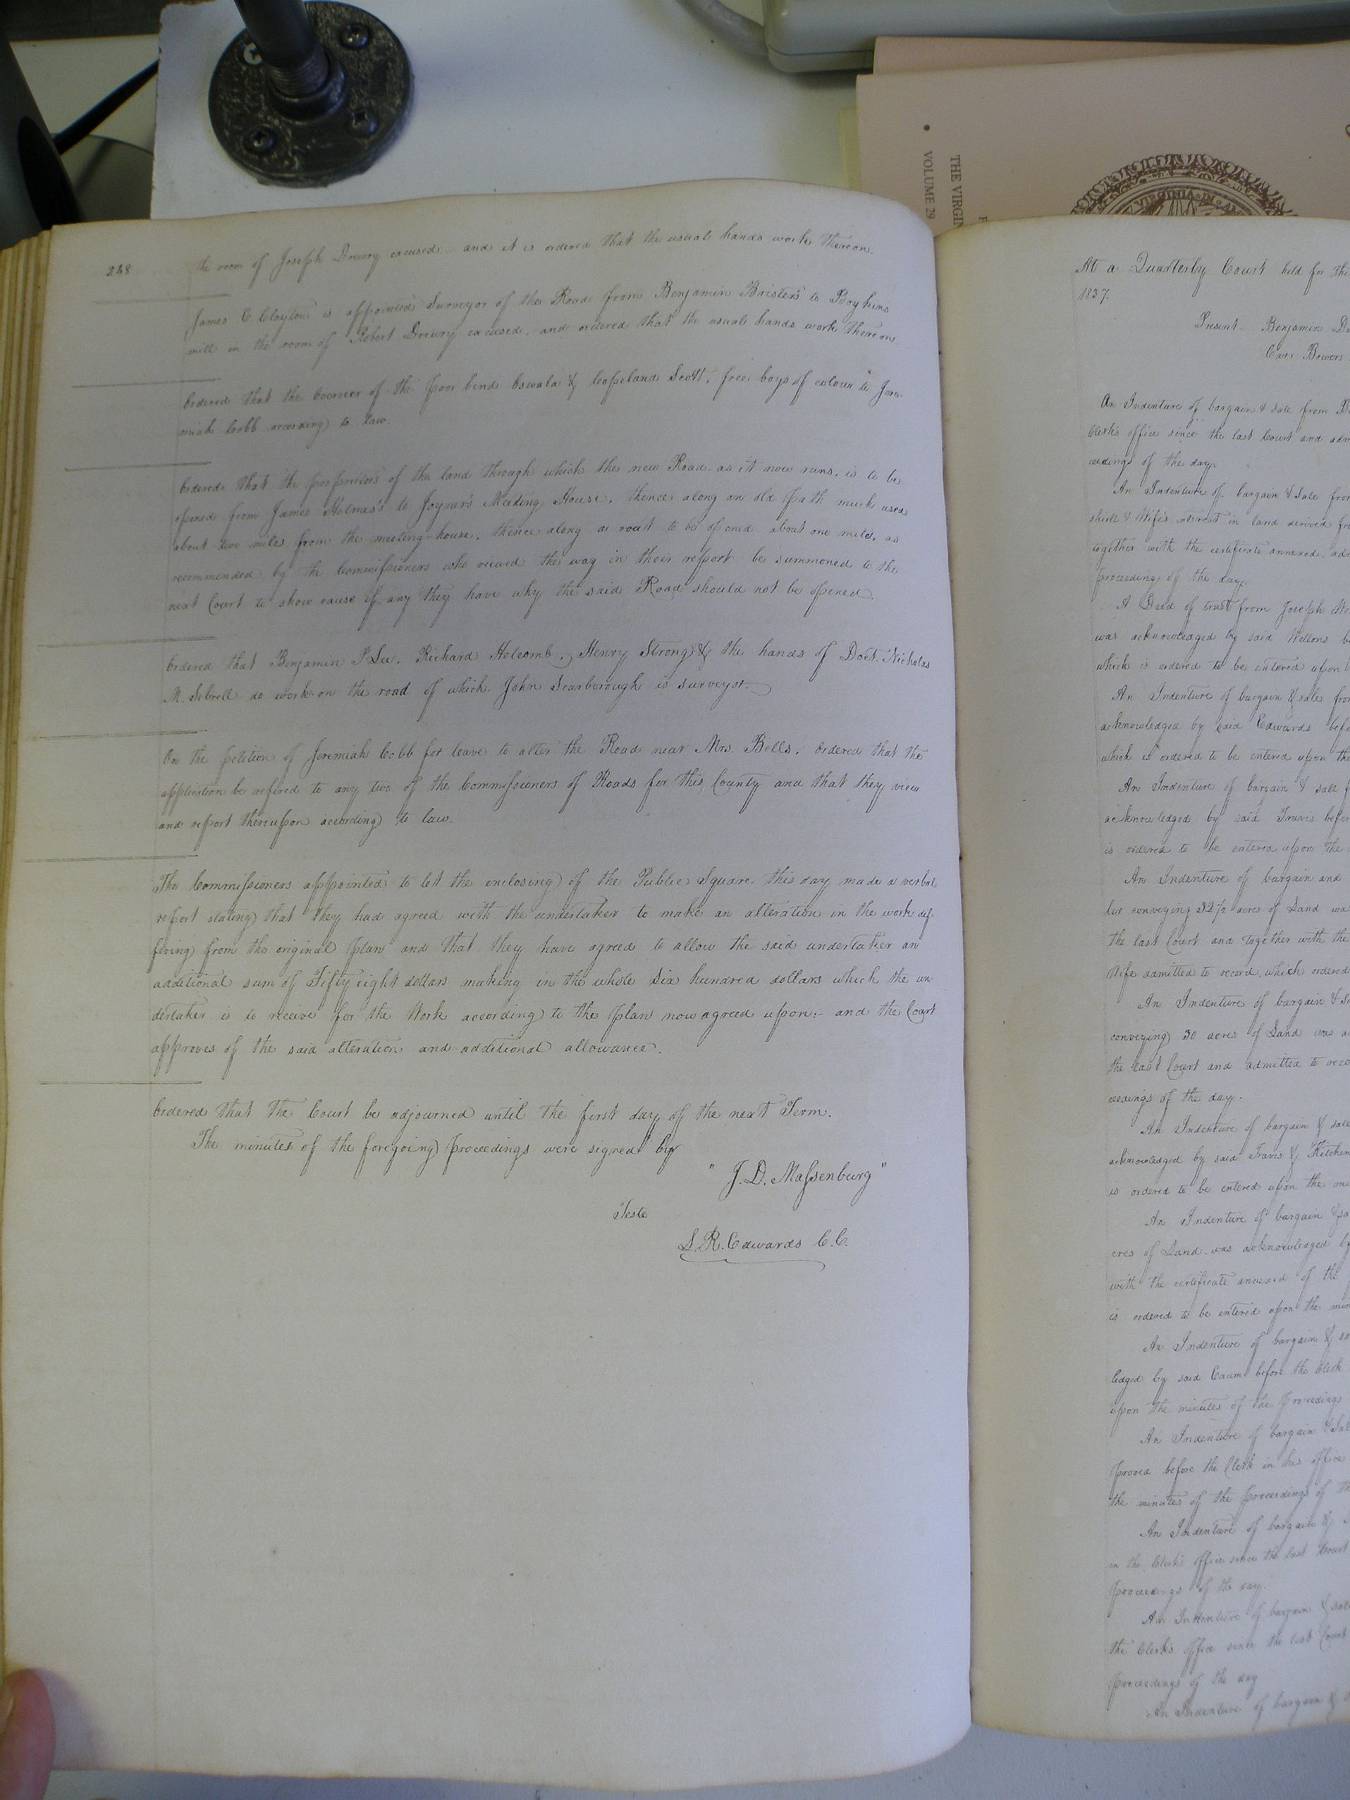 THE VIRGIN
VOLUME 29
VIRGINIA
248
the room of Joseph Drury excused and it is ordered that the usual hands work thereon.
James C Clayton is appointed Surveyor of the Road from Benjamin Brister's to Boykins
mill in the room of Robert Drewry excused, and ordered that the usual hands work thereon
Ordered that the Overseer of the poor bind Oswald & Copeland Scott, free boys of colour to Jere-
miah Cobb according to law.
Ordered that the proprietors of the land through which the new Road as it now runs, is to be
opened from James Holmes's to Joyner's Meeting House, thence along an old path much used
about two miles from the meeting-house, thence along a rout to be opened about one mile, as
recommended by the Commissioners who viewed the way in their report be summoned to the
next Court to show cause if any they have why the said Road should not be opened.
Ordered that Benjamin F Lee, Richard Holcomb, Henry Strong & the hands of Doct. Nicholas
M. Sebrell do work on the road of which John Scarborough is surveyor.
On the petition of Jeremiah Cobb for leave to alter the Road near Mrs. Bells, Ordered that the
application be refered to any two of the Commissioners of Roads for this County and that they view
and report thereupon according to law.
The Commissioners appointed to let the enclosing of the Public Square this day made a verbal
report stating that they had agreed with the undertaker to make an alteration in the work dif-
fering from the original plan and that they have agreed to allow the said undertaker an
additional sum of Fifty eight dollars making in the whole Six hundred dollars which the un-
dertaker is to receive for the Work according to the plan now agreed upon:- and the Court
approves of the said alteration and additional allowance.
Ordered that the Court be adjourned until the first day of the next Term.
The minutes of the foregoing proceedings were signed by
"J. D. Massenburg"
Teste
L. R. Edwards C.C.
At a Quarterly Court held for the
1837.
Present Benjamin
Carr Bowers
An Indenture of bargain & sale from
Clerk's office since the last Court and adm
ceedings of the day.
An Indenture of bargain & sale from
& Wife's interest in land derived from
together with the certificate annexed, adm
proceedings of the day.
A Deed of trust from Joseph
was acknowledged by said Wellons be
which is ordered to be entered upon
An Indenture of bargain & sale from
acknowledged by said Edwards before
which is ordered to be entered upon the
An Indenture of bargain & sale
acknowledged by said Travis before
is ordered to be entered upon the
An Indenture of bargain and
conveying 32½ acres of Land was
the last Court and together with the
Wife admitted to record, which ordered
An Indenture of bargain &
conveying 30 acres of Land was
the last Court and admitted to record
ceedings of the day.
An Indenture of bargain & sale
acknowledged by said Travis & Kitchen
is ordered to be entered upon the
An Indenture of bargain &
acres of Land was acknowledged by
with the certificate annexed of the
is ordered to be entered upon the min
An Indenture of bargain &
ledged by said before the Clerk
upon the minutes of the Proceedings
An Indenture of bargain & Sale
proved before the Clerk in his office
the minutes of the proceedings of the
An Indenture of bargain &
in the Clerk's office since the last Court
proceedings of the day.
An Indenture of bargain & sale
the Clerk's office since the last Court
proceedings of the day
An Indenture of bargain &